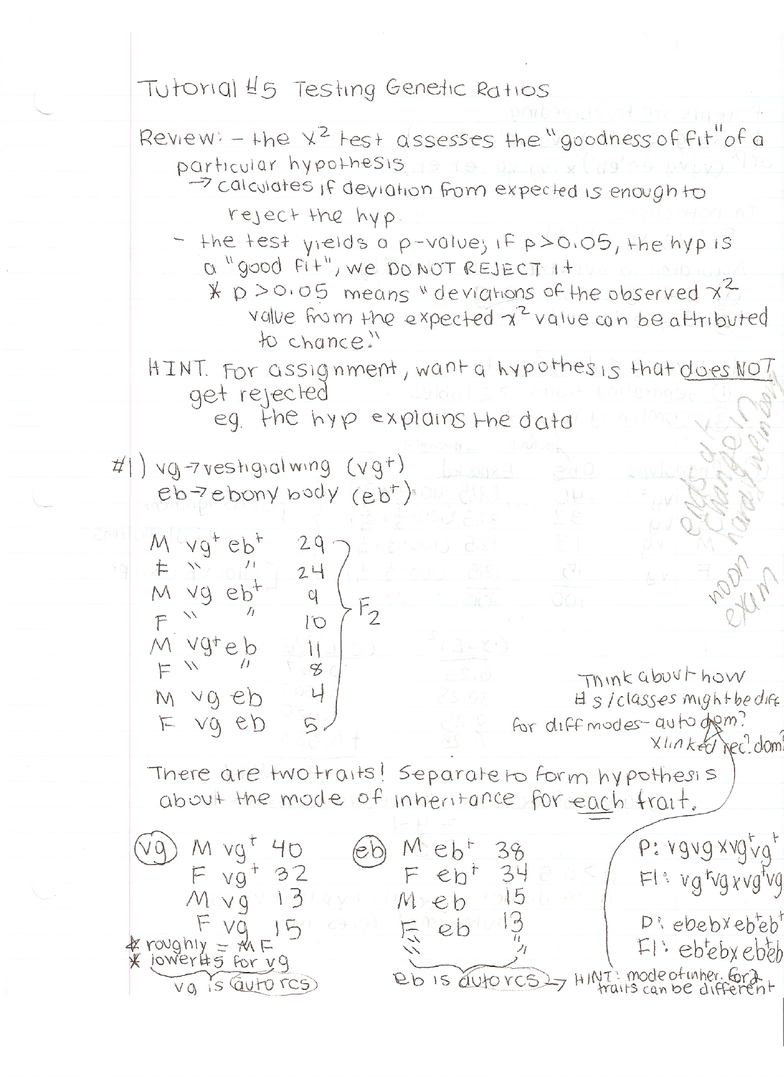 Tutorial #5 Testing Genetic Ratios
Review: - the x² test assesses the "goodness of fit" of a
particular hypothesis
→ calculates if deviation from expected is enough to
reject the hyp.
- the test yields a p-value; if p>0.05, the hyp is
a "good fit", we DO NOT REJECT it
* p>0.05 means "deviations of the observed x²
value from the expected x² value can be attributed
to chance."
HINT. For assignment, want a hypothesis that does NOT
get rejected
eg. the hyp explains the data
ends at
change in
hard
noon
exam
#1) vg → vestigial wing (vg⁺)
eb → ebony body (eb⁺)
M vg⁺ eb⁺ 29
F " " 24
M vg eb⁺ 9
F " " 10
M vg⁺ eb 11
F " " 8
M vg eb 4
F vg eb 5
F₂
Think about how
#s/classes might be diff
for diff modes - auto dom?
X linked rec? dom?
There are two traits! Separate to form hypothesis
about the mode of inheritance for each trait.
vg M vg⁺ 40
F vg⁺ 32
M vg 13
F vg 15
* roughly = MF
* lower #s for vg
vg is auto rcs
eb M eb⁺ 38
F eb⁺ 34
M eb 15
F eb 13
" "
eb is auto rcs → HINT: mode of inher. for 2
traits can be different
P: vgvg x vg⁺vg⁺
F1: vg⁺vg x vg⁺vg
P: ebeb x eb⁺eb⁺
F1: eb⁺eb x eb⁺eb